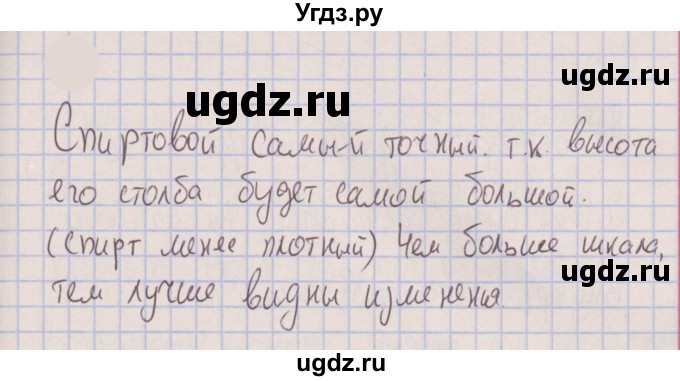 Угдз.ру
ugdz.ru
ugdz.ru
Спиртовой самый точный. т.к. высота
его столба будет самой большой.
(спирт менее плотный) Чем больше шкала,
ugdz.ru
тем лучше видны изменения
ugdz.ru